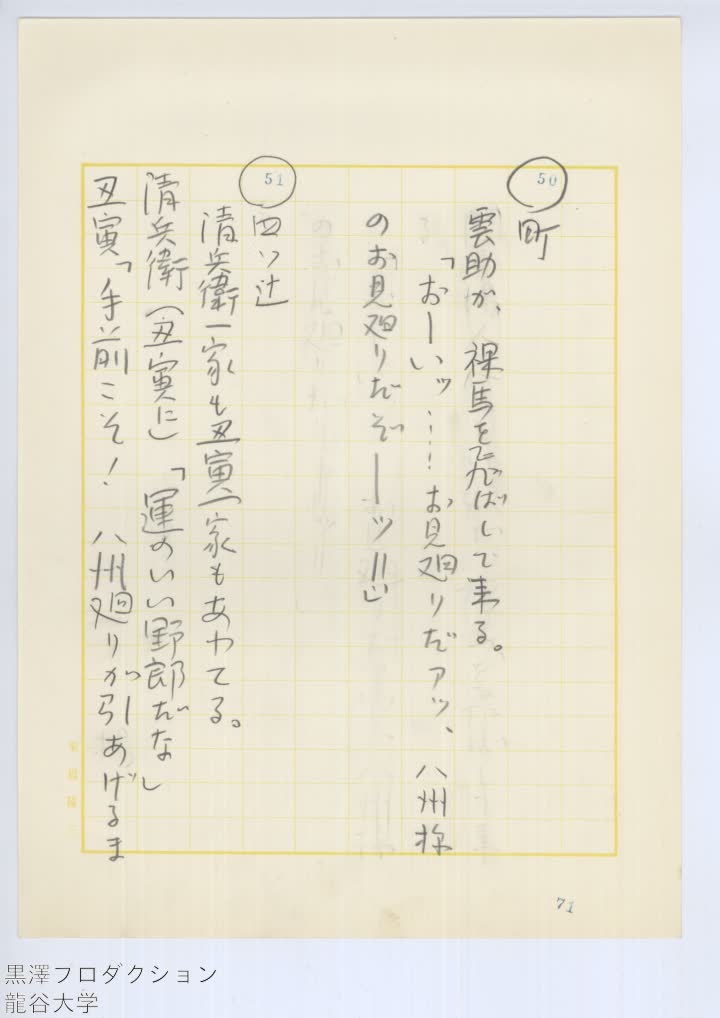 50
町
雲助が、裸馬を飛ばして来る。
「おーいッ…! お見廻りだアッ、八州様
のお見廻りだぞーッ!!」
51
四ツ辻
清兵衛一家も丑寅一家もあわてる。
清兵衛（丑寅に）「運のいい野郎だな」
丑寅「手前こそ! 八州廻りが引あげるま
71
黒澤プロダクション
龍谷大学